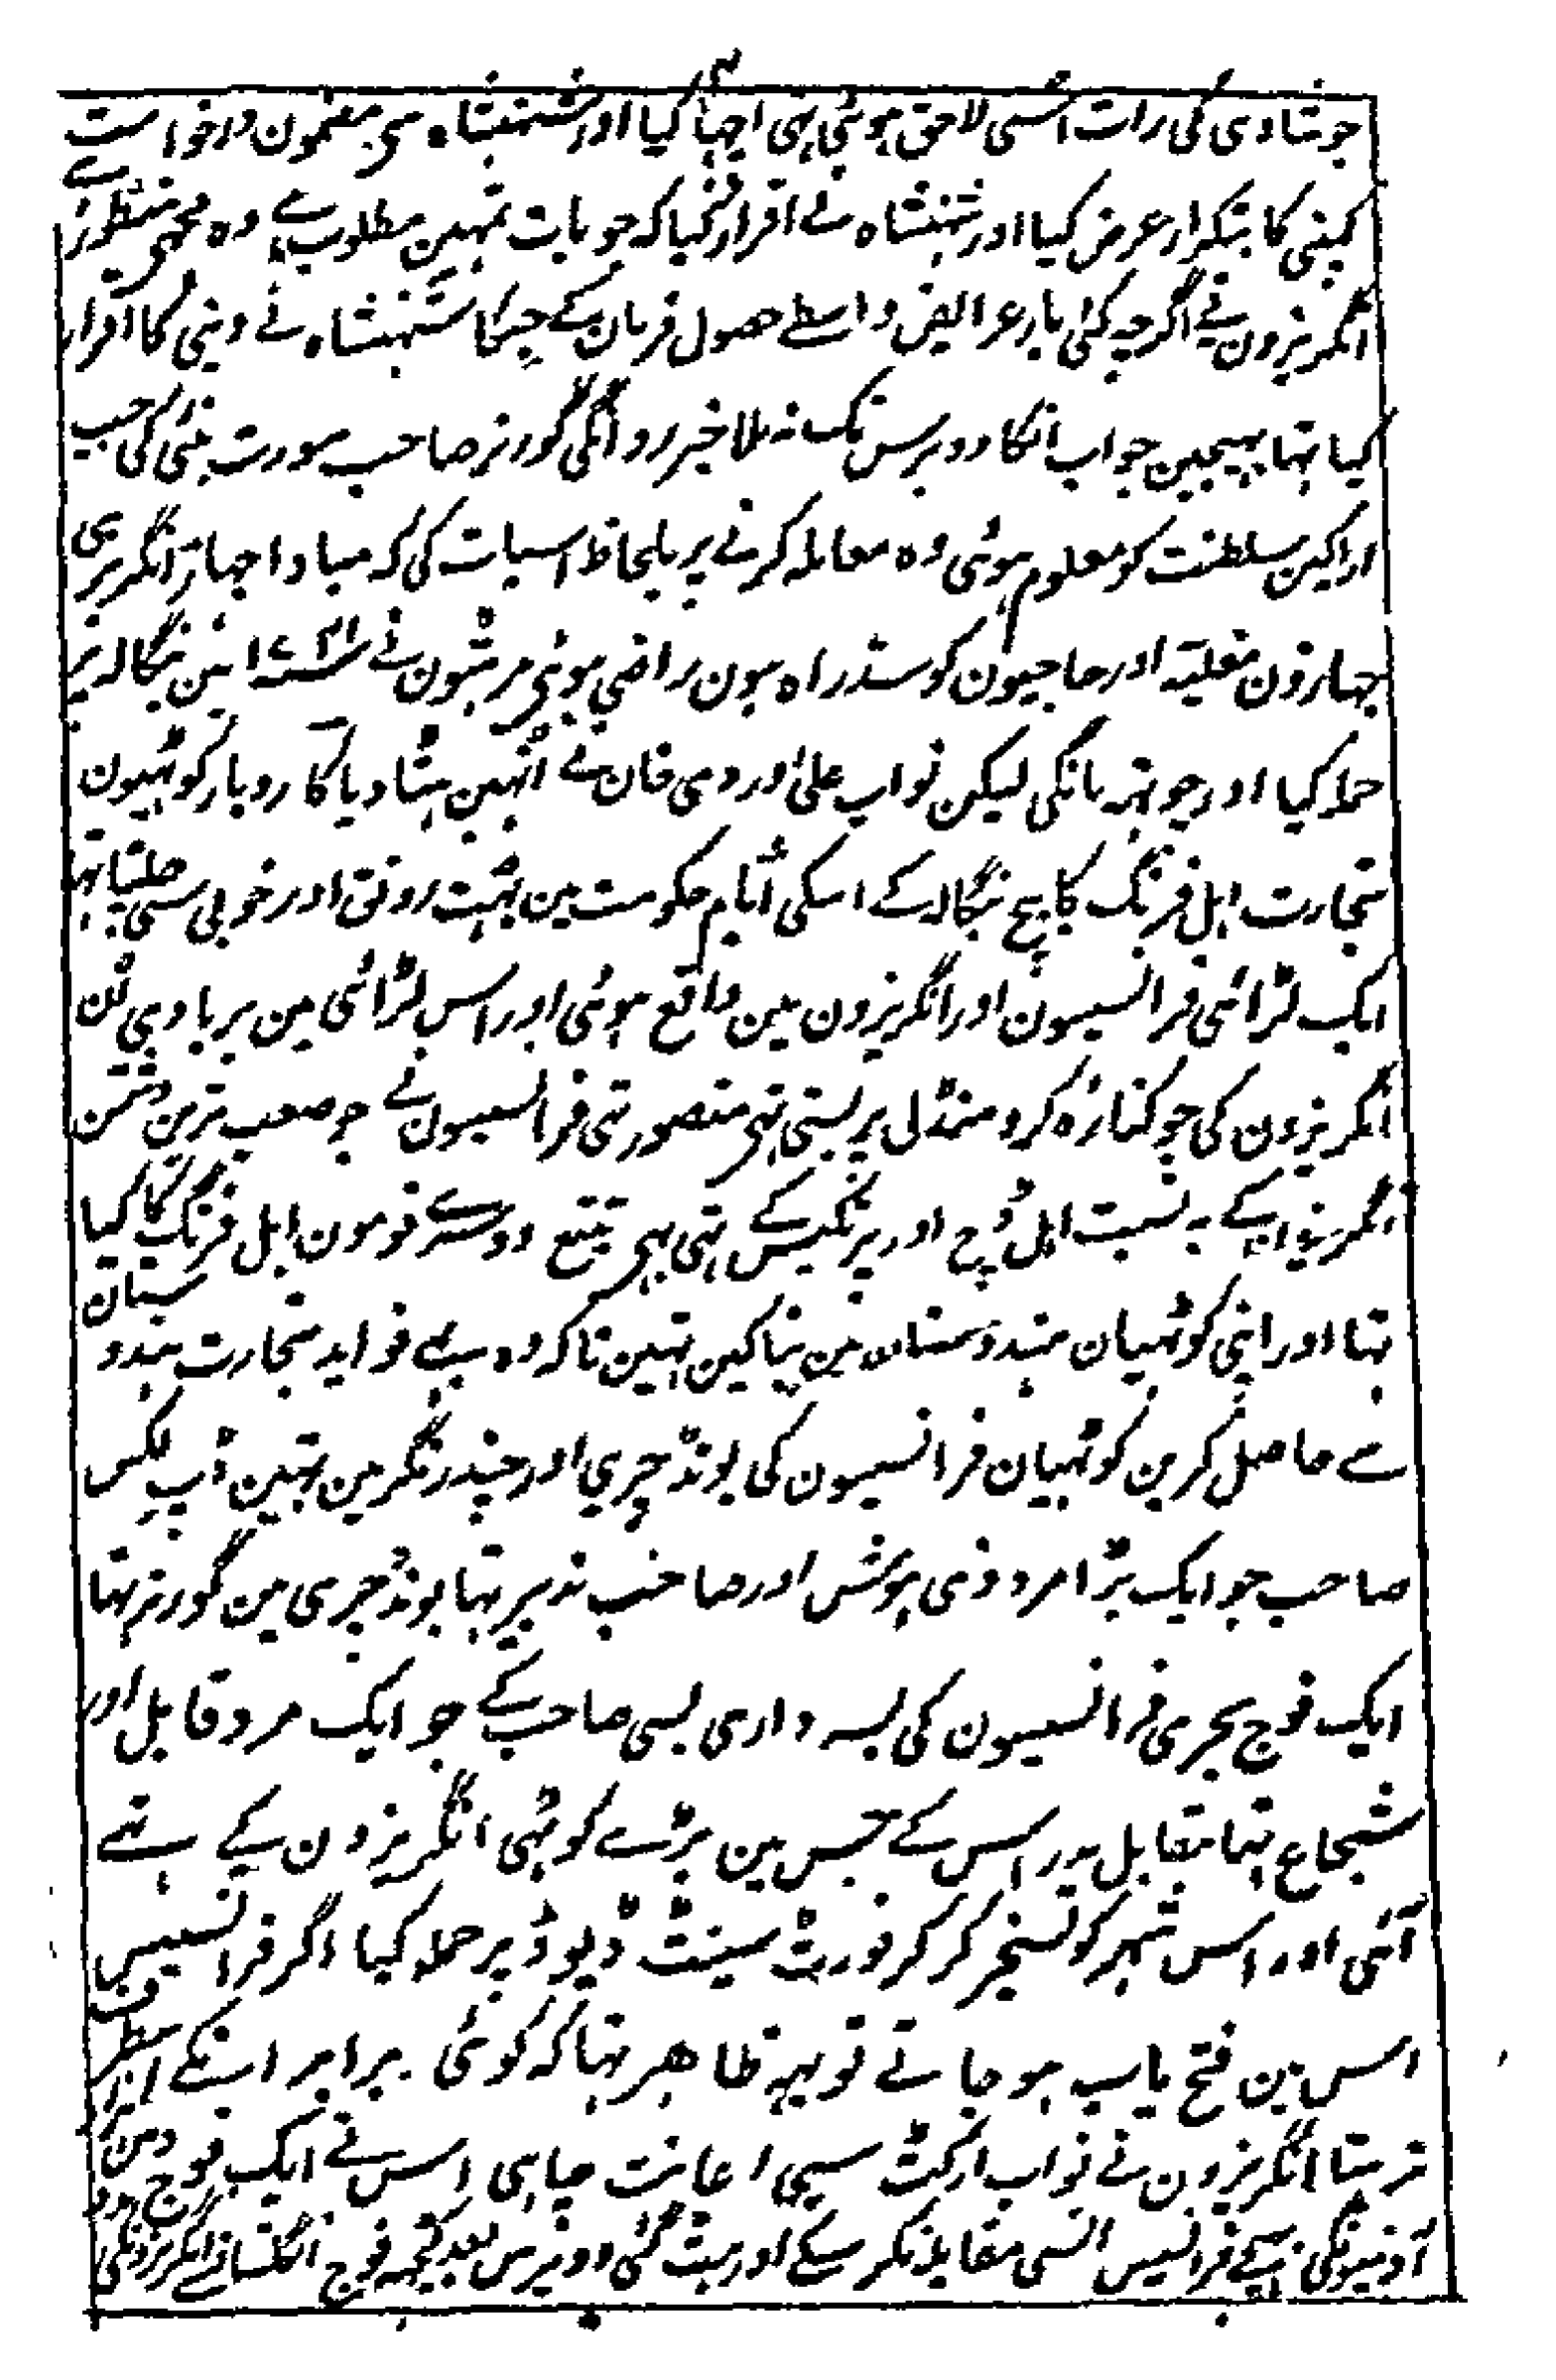 جو شادی کی رات اسی لاحق ہوئی تہی اچہا کیا اور شہنشاہ سی مضمون درخواست
کمپنی کا بتکرار عرض کیا اور شہنشاہ نے اقرار کیا کہ جو بات تمہین مطلوب ہے وہ مجہی منظور ہے
انگریزون نے اگرچہ کئی بار عرایض واسطے حصول فرمان کے جسکا شہنشاہ نے دینی کا اقرار
کیا تہا بہیجین جواب انکا دو برس تک نہ ملا خبر روانگی گورنر صاحب سورت بمبئی کی جب
اراکین سلطنت کو معلوم ہوئی وہ معاملہ کرنے پر بلحاظ اسبات کی کہ مبادا جہاز انگریزی
جہازون مغلیہ اور حاجیون کو سدراہ ہون راضی ہوئی مرہٹون نے ۱۷۴۱ مین بنگالہ پر
حملا کیا اور چوتہہ مانگی لیکن نواب علی وردی خان نے انہین ہٹا دیا کاروبار کوٹہیون
تجارت اہل فرنگ کا بیچ بنگالہ کے اسکی ایام حکومت مین بہت رونق اور خوبی سی چلتا تہا
ایک لڑائی فرانسیسون اور انگریزون مین واقع ہوئی اور اس لڑائی مین بربادی ان
انگریزون کی جو کنارہ کرومنڈل پر بستی تہی متصور تہی فرانسیسون نے جو صعب ترین دشمن
انگریزوں کے بہ نسبت اہل ڈچ اور پرتگیس کے تہی بہی تتبع دوسرے قومون اہل فرنگ کا کیا
تہا اور اپنی کوٹہیان ہندوستان مین بنا کین تہین تاکہ وہ بہی فواید تجارت ہندوستان
سے حاصل کرین کوٹہیان فرانسیسون کی پونڈچری اور چندرنگر مین تہین ڈپلکس
صاحب جو ایک بڑا مرد ذی ہوش اور صاحب تدبیر تہا پونڈچری مین گورنر تہا
ایک فوج بحری فرانسیسون کی بسرداری لبسی صاحب کے جو ایک مرد قابل اور
شجاع تہا بمقابل مدراس کے جس مین بڑے کوٹہی انگریزون کے تہے
آئی اور اس شہر کو تسخیر کر کر فورٹ سینٹ ڈیوڈ پر حملہ کیا اگر فرانسیس
اس مین فتح یاب ہو جاتے تو یہہ ظاہر تہا کہ کوئی برابر انکے از طرف
نرہتا انگریزون نے نواب ارکٹ سی اعانت چاہی اس نے ایک فوج
آدمیونکی بہیجی فرانسیس اسی مقابلہ نکر سکے اور ہٹ گئی دو برس بعد کچہہ فوج انگلستان سے انگریزونکی